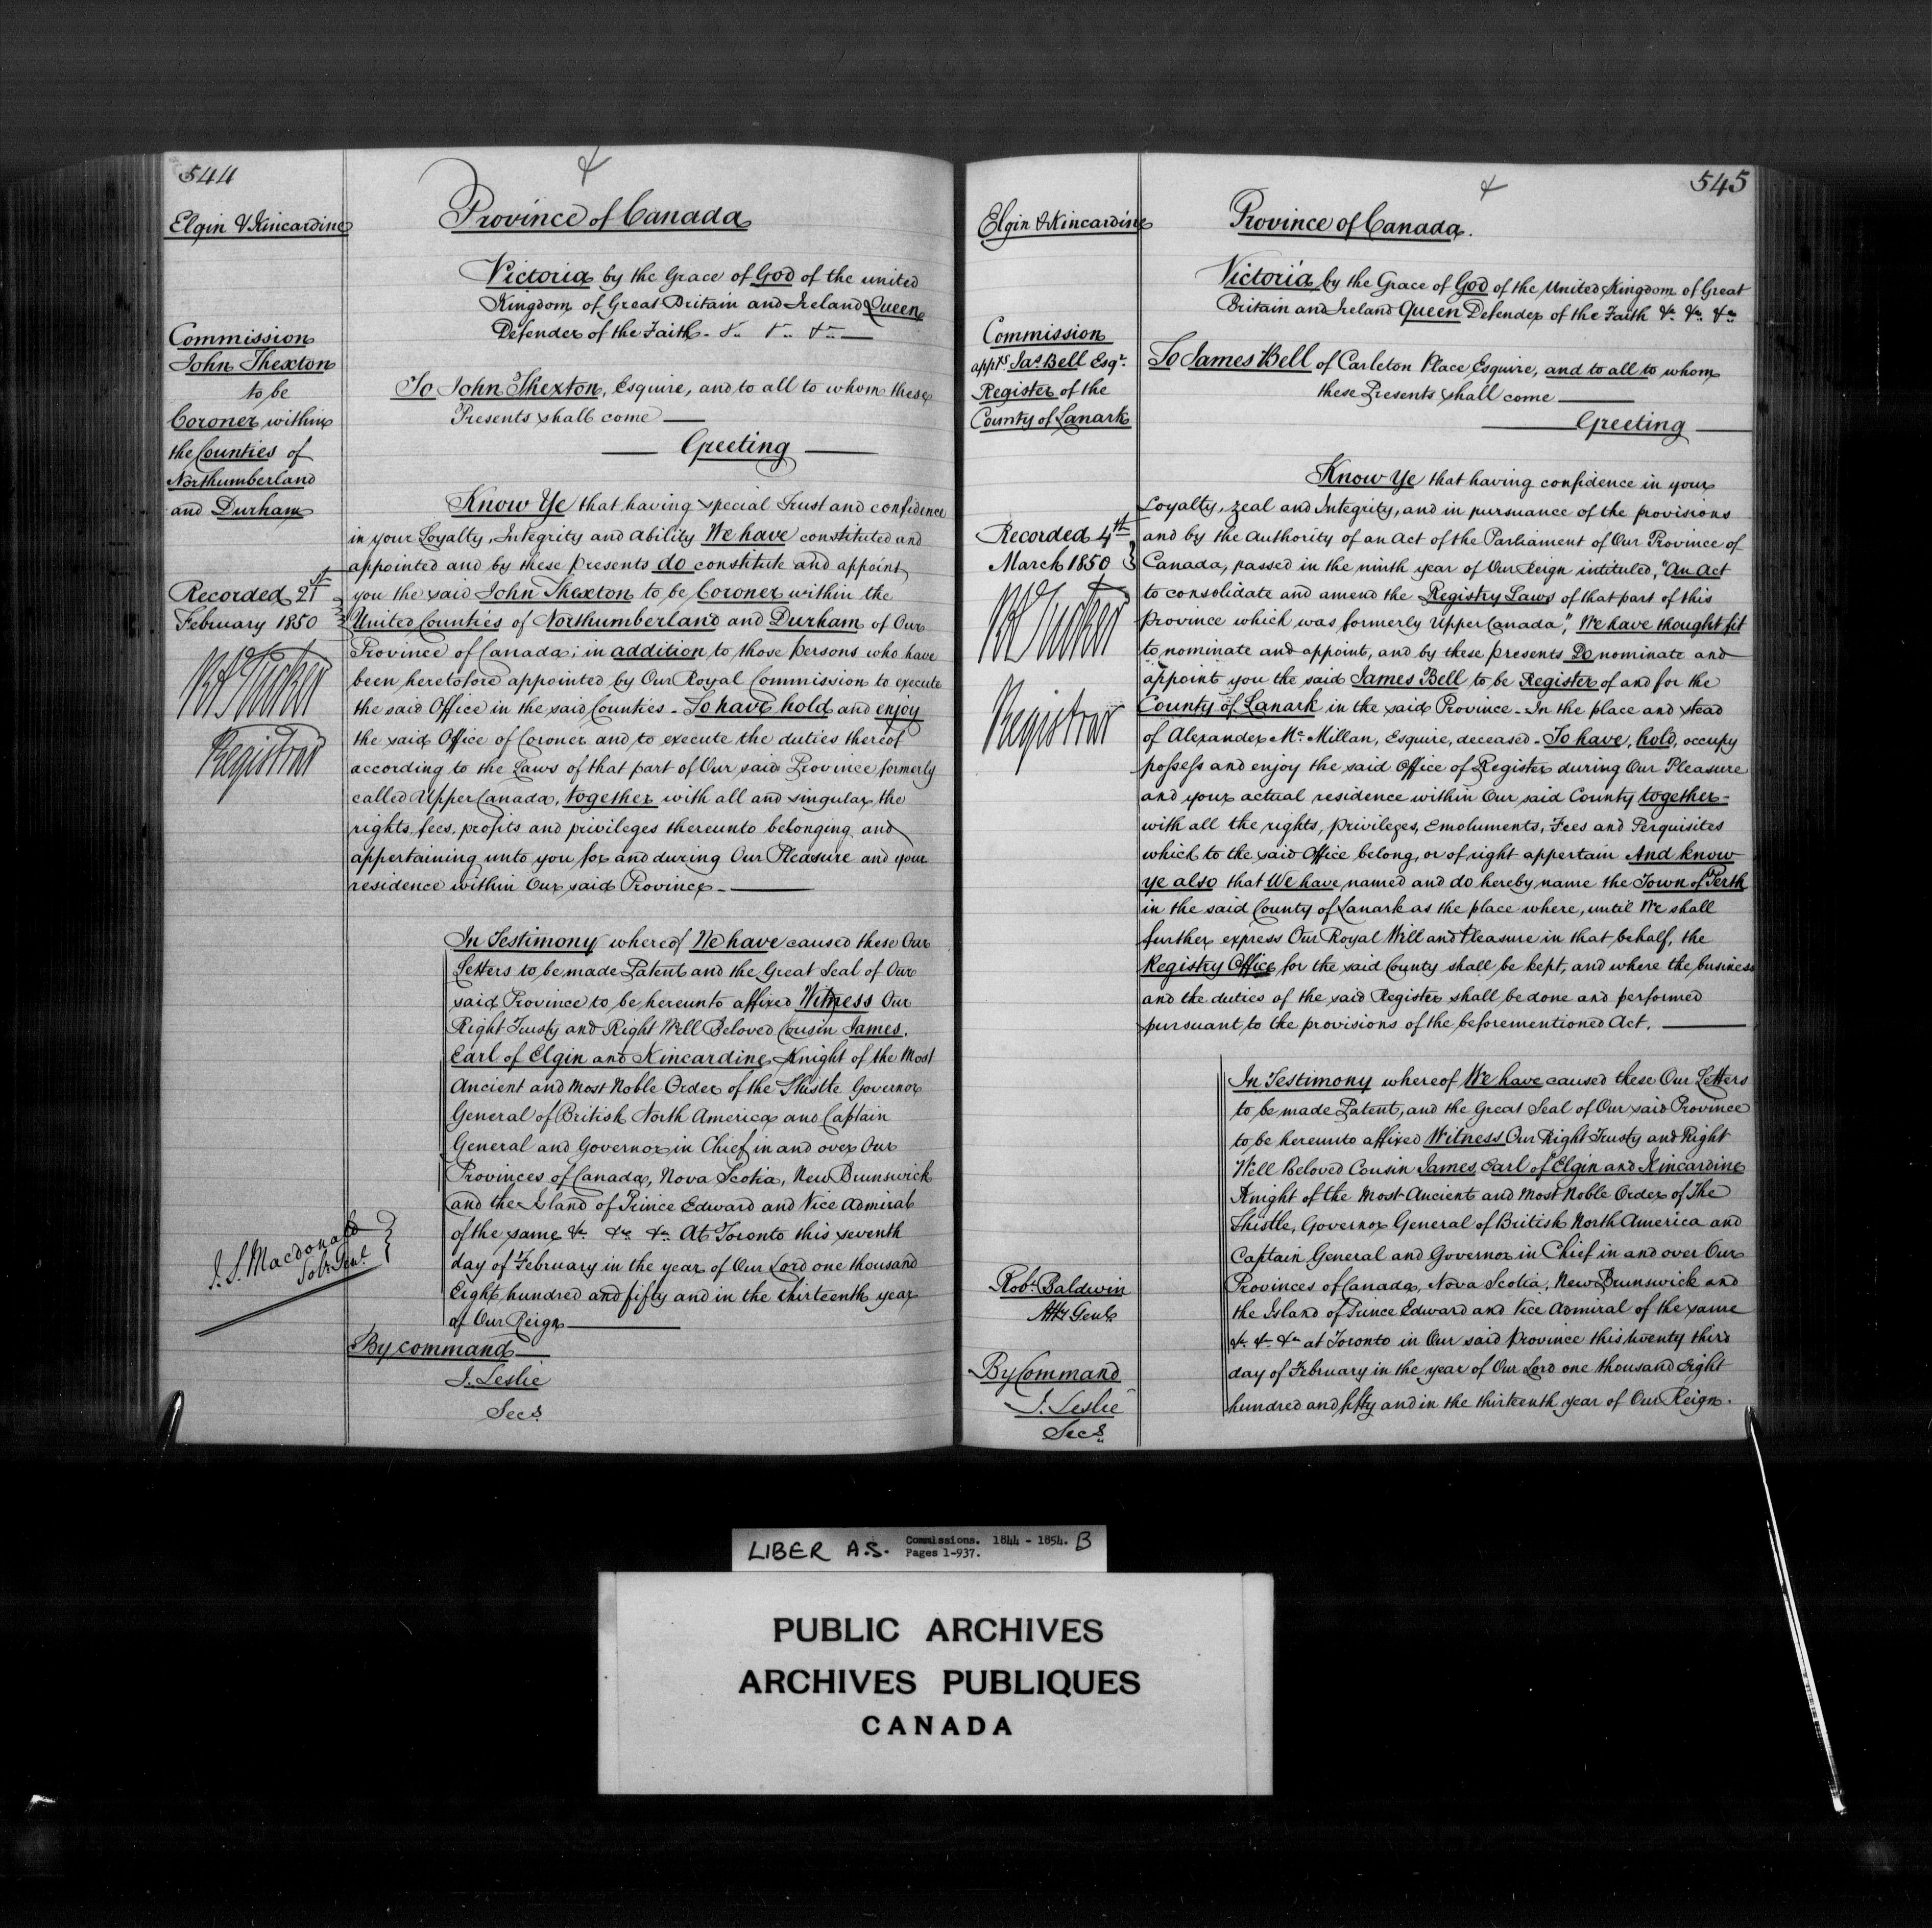 544
Elgin & Kincardine
Province of Canada
Victoria by the Grace of God of the united
Kingdom of Great Britain and Ireland Queen
Defender of the Faith - &c &c &c
Commission
John Thexton
to be
Coroner within
the Counties of
Northumberland
and Durham
To John Thexton, Esquire, and to all to whom these
Presents shall come
Greeting
Know Ye that having special Trust and confidence
in your Loyalty, Integrity and ability We have constituted and
appointed and by these presents do constitute and appoint
you the said John Thexton to be Coroner within the
United Counties of Northumberland and Durham of Our
Province of Canada; in addition to those persons who have
been heretofore appointed by Our Royal Commission to execute
the said Office in the said Counties - To have hold and enjoy
the said Office of Coroner and to execute the duties thereof
according to the Laws of that part of Our said Province formerly
called Upper Canada, together with all and singular the
rights, fees, profits and privileges thereunto belonging and
appertaining unto you for and during Our Pleasure and your
residence within Our said Province -
Recorded 21st
February 1850
RA Tucker
Registrar
In Testimony whereof We have caused these Our
Letters to be made Patent and the Great Seal of Our
said Province to be hereunto affixed Witness Our
Right Trusty and Right Well Beloved Cousin James,
Earl of Elgin and Kincardine Knight of the Most
Ancient and Most Noble Order of the Thistle Governor
General of British North America and Captain
General and Governor in Chief in and over Our
Provinces of Canada, Nova Scotia, New Brunswick
and the Island of Prince Edward and Vice Admiral
of the same &c &c &c At Toronto this seventh
day of February in the year of Our Lord one thousand
Eight hundred and fifty and in the thirteenth year
of Our Reign
J. S. Macdonald
Solr Genl
By command
J. Leslie
Secy
545
Elgin & Kincardine
Province of Canada.
Victoria by the Grace of God of the United Kingdom of Great
Britain and Ireland Queen Defender of the Faith &c &c &c
Commission
appg Jas Bell Esqr
Register of the
County of Lanark
To James Bell of Carleton Place Esquire, and to all to whom
these Presents shall come
Greeting
Know Ye that having confidence in your
Loyalty, zeal and Integrity, and in pursuance of the provisions
and by the Authority of an Act of the Parliament of Our Province of
Canada, passed in the ninth year of Our Reign intituled, "An Act
to consolidate and amend the Registry Laws of that part of this
province which was formerly Upper Canada", We have thought fit
to nominate and appoint, and by these presents Do nominate and
appoint you the said James Bell to be Register of and for the
County of Lanark in the said Province - In the place and stead
of Alexander Mc Millan, Esquire, deceased - To have, hold, occupy
possess and enjoy the said Office of Register during Our Pleasure
and your actual residence within Our said County together -
with all the rights, privileges, Emoluments, Fees and Perquisites
which to the said Office belong, or of right appertain And know
ye also that We have named and do hereby name the Town of Perth
in the said County of Lanark as the place where, until We shall
further express Our Royal Will and Pleasure in that behalf, the
Registry Office for the said County shall be kept, and where the business
and the duties of the said Register shall be done and performed
pursuant to the provisions of the beforementioned Act.
Recorded 4th
March 1850
RA Tucker
Registrar
In Testimony whereof We have caused these Our Letters
to be made Patent, and the Great Seal of Our said Province
to be hereunto affixed Witness Our Right Trusty and Right
Well Beloved Cousin James, Earl of Elgin and Kincardine
Knight of the Most Ancient and Most Noble Order of The
Thistle, Governor General of British North America and
Captain General and Governor in Chief in and over Our
Provinces of Canada, Nova Scotia, New Brunswick and
the Island of Prince Edward and Vice Admiral of the same
&c &c &c at Toronto in Our said Province this twenty third
day of February in the year of Our Lord one thousand Eight
hundred and fifty and in the thirteenth year of Our Reign.
Robt Baldwin
Atty Genl
By Command
J. Leslie
Secy
LIBER A.S. Commissions. 1844 - 1854. B
Pages 1-937.
PUBLIC ARCHIVES
ARCHIVES PUBLIQUES
CANADA